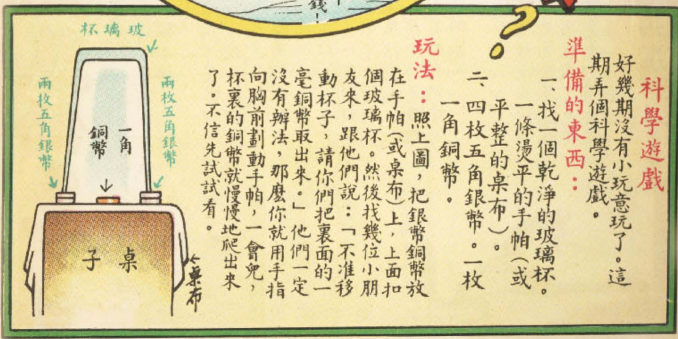 錢！
科學遊戲
好幾期沒有小玩意玩了。這
期弄個科學遊戲。
準備的東西：
一、找一個乾淨的玻璃杯。
一條燙平的手帕（或
平整的桌布）。
二、四枚五角銀幣。一枚
一角銅幣。
玩法：照上圖，把銀幣銅幣放
在手帕（或桌布）上，上面扣
個玻璃杯。然後找幾位小朋
友來，跟他們說：「不准移
動杯子，請你們把裏面的一
毫銅幣取出來。」他們一定
沒有辦法，那麽你就用手指
向胸前劃動手帕，一會兒，
杯裏的銅幣就慢慢地爬出來
了。不信先試試看。
杯璃玻
兩枚五角銀幣
一角
銅幣
兩枚五角銀幣
子桌
桌布